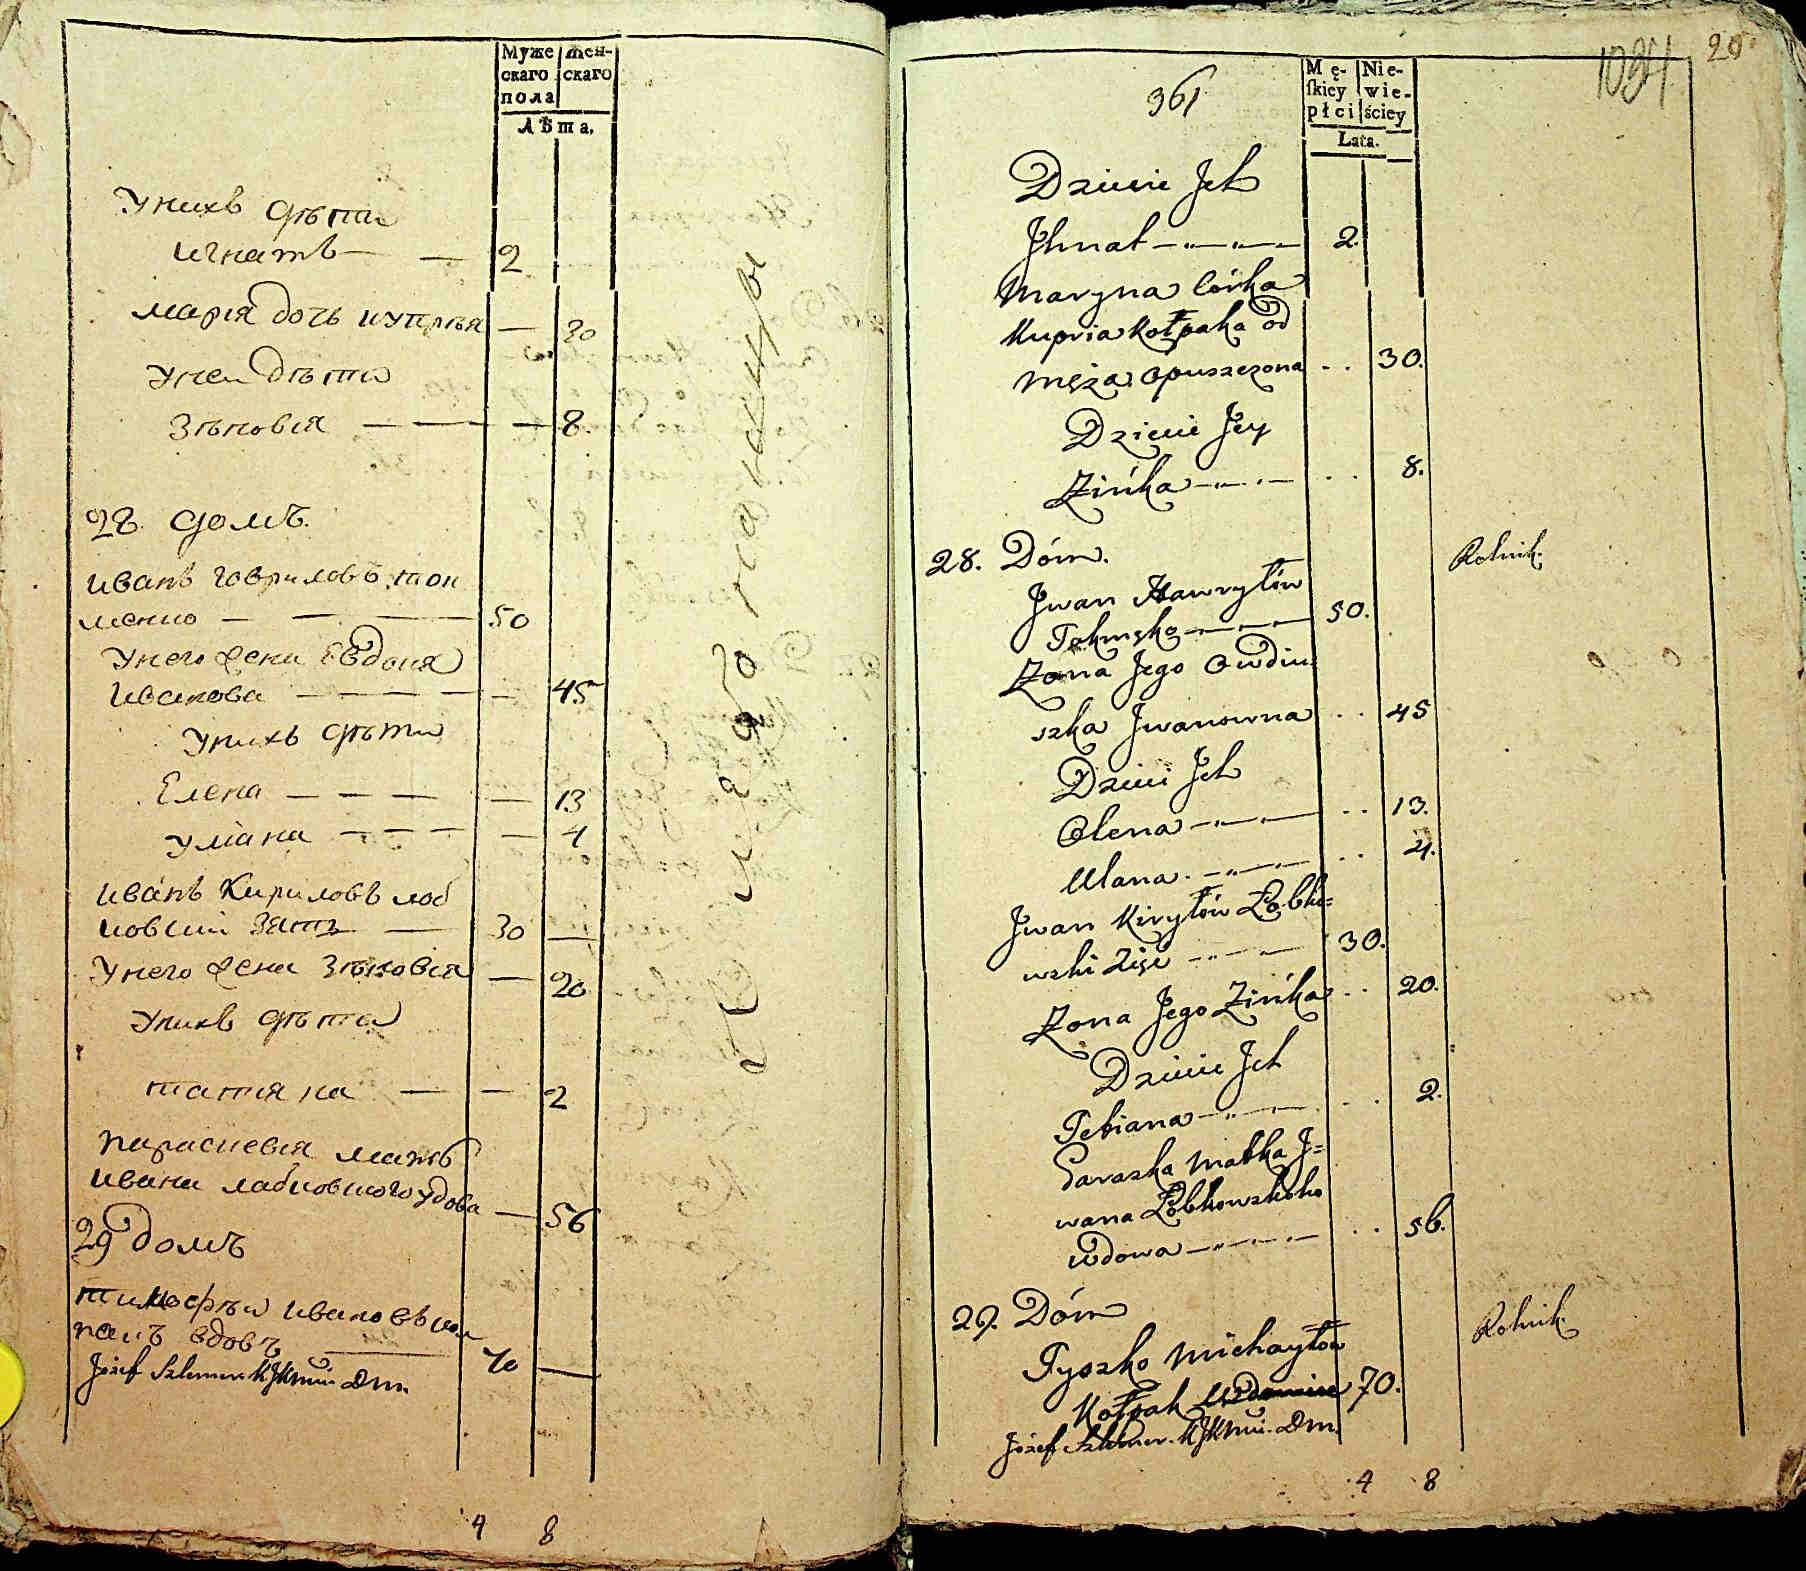 Муже
скаго
пола
жен-
скаго
Лѣта.
Унихъ дѣти
Игнатъ 2
Марія дочь Купрѣя 30
Унеи дѣти
Зѣновія 8.
28. домъ.
Иванъ Гавриловъ Ток
менко 50
Унего жена Евдокія
Иванова 45
Унихъ дѣти
Елена 13
Уліана 4
Иванъ Кириловъ Лоб
ковскій Зять 30
Унего жена Зѣновія 20
Унихъ дѣти
Татіяна 2
Параскевія мать
Ивана Лабковского удова 56
29 домъ
Тимофѣй Ивановъ Кол
пакъ вдовъ 70
Józef
4 8
361
1034
20
Mę-
ſkiey
płci
Nie-
wie-
ściey
Lata.
Dziecie Jch
Jhnat 2.
Maryna Córka
Kupria Kołpaka od
męża opuszczona 30.
Dziecie Jey
Zińka 8.
28. Dóm. Rolnik.
Jwan Hawryłów
Tokmęko 50.
Zona Jego Owdiu
szka Jwanowna 45
Dzieci Jch
Olena 13.
Ulana 4.
Jwan Kiryłów Łobko=
wski Zięć 30.
Zona Jego Zińka 20.
Dziecie Jch
Tetiana 2.
Paraska Matka J=
wana Łobkowskoho
wdowa 56.
29. Dóm Rolnik.
Tyszko Michayłow
Kołpak 70.
Józef
4 8